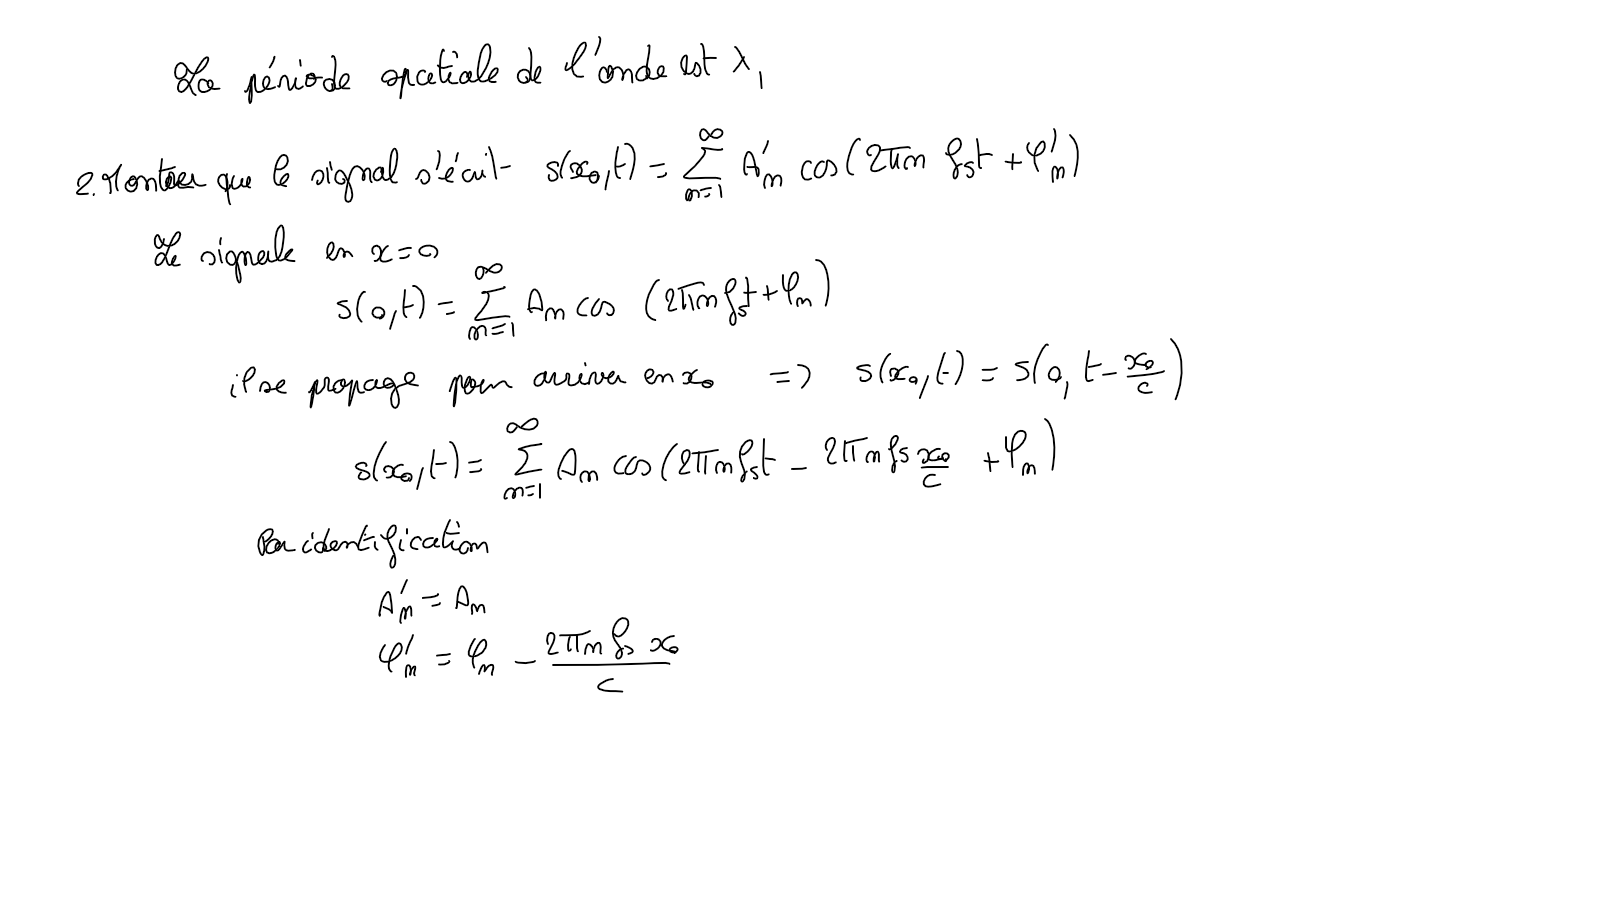 La période spatiale de l'onde est λ₁
2. Montrer que le signal s'écrit s(x₀,t) = ∑_{n=1}^{∞} A'ₙ cos(2πn fₛt + φ'ₙ)
Le signale en x=0
s(0,t) = ∑_{n=1}^{∞} Aₙ cos (2πn fₛt + φₙ)
il se propage pour arriver en x₀ => s(x₀,t) = s(0, t - x₀/c)
s(x₀,t) = ∑_{n=1}^{∞} Aₙ cos(2πn fₛt - 2πn fₛ x₀/c + φₙ)
Par identification
A'ₙ = Aₙ
φ'ₙ = φₙ - 2πn fₛ x₀/c